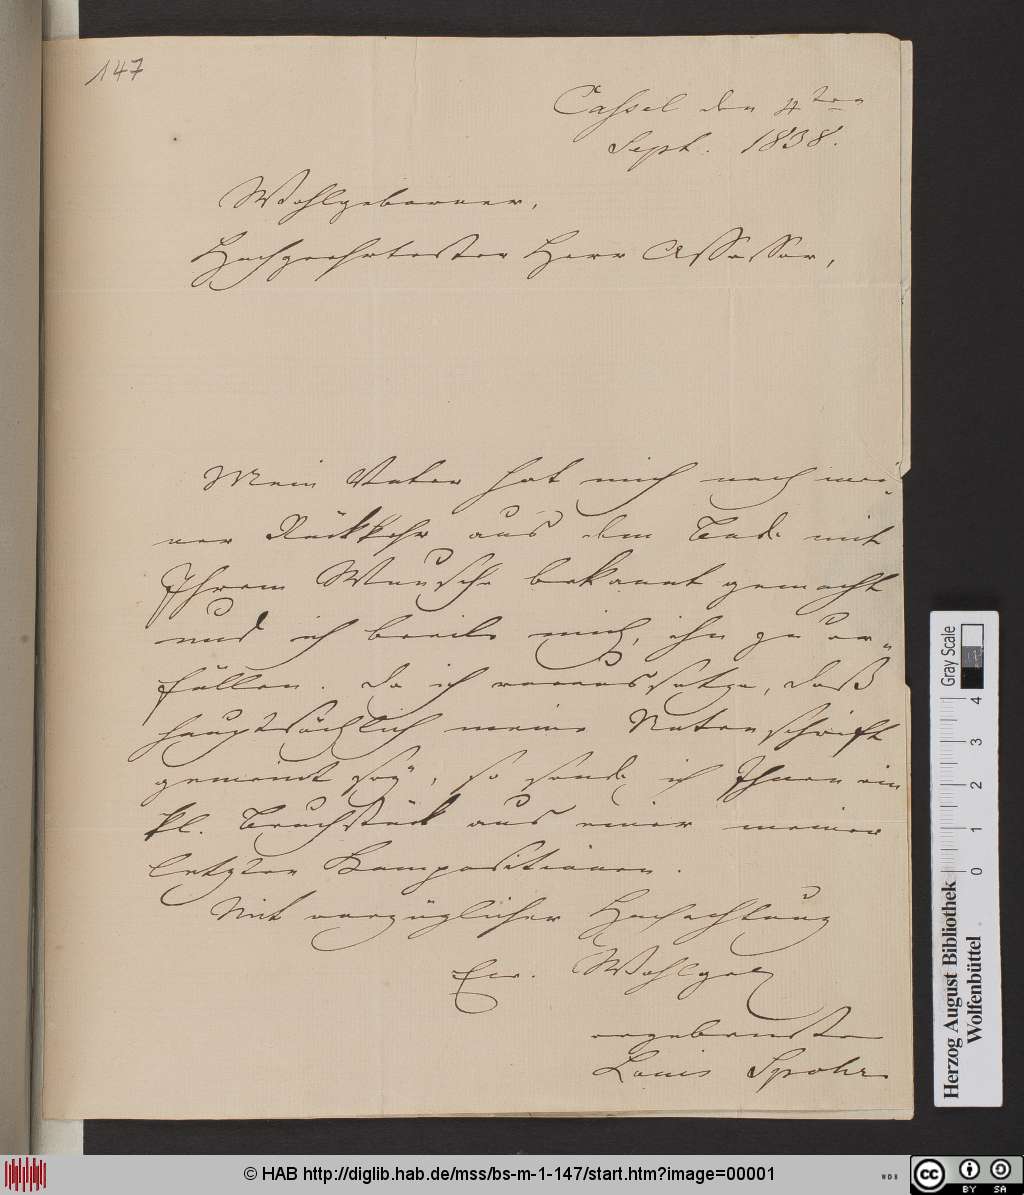 147
Cassel den 4ten
Sept. 1838.
Wohlgeborner,
Hochgeehrtester Herr Assessor,
Mein Vater hat mich nach mei-
ner Rückkehr aus dem Bade mit
Ihrem Wunsche bekannt gemacht
und ich beeile mich, ihn zu er-
füllen. Da ich voraussetze, daß
hauptsächlich meine Notenschrift
gemeint sey, so sende ich Ihnen ein
kl. Bruchstück aus einer meiner
letzten Kompositionen.
Mit vorzüglicher Hochachtung
Ew. Wohlgeb
ergebenster
Louis Spohr.
Gray Scale
0 1 2 3 4
Herzog August Bibliothek
Wolfenbüttel
© HAB http://diglib.hab.de/mss/bs-m-1-147/start.htm?image=00001
WDB
cc BY SA